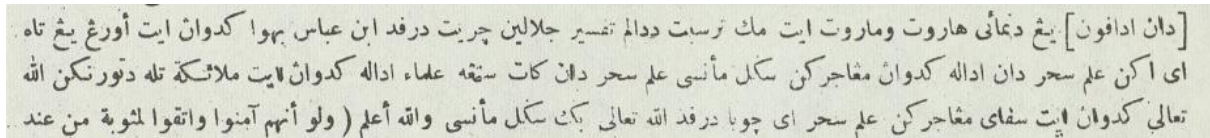 [دان ادافون] يڠ دنمائى هاروت وماروت ايت مك ترسبت ددالم تفسير جلالين چريت درفد ابن عباس بهوا كدوان ايت أورڠ يڠ تاه
اى اكن علم سحر دان اداله كدوان مڠاجركن سكل مأنسى علم سحر دان كات ستڠه علماء اداله كدوان ايت ملائكة تله دتورنكن الله
تعالى كدوان ايت سفاى مڠاجركن علم سحر اى چوبا درفد الله تعالى بك سكل مأنسى والله أعلم ( ولو أنهم آمنوا واتقوا لمثوبة من عند